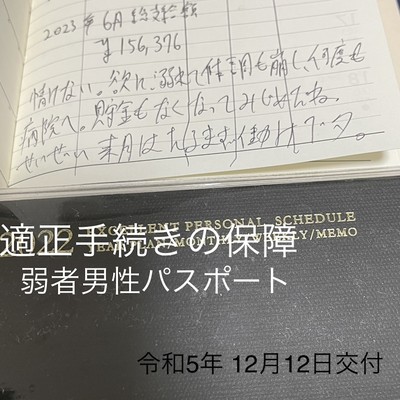 2023年 6月 総支給額
¥156,376
情けない。欲に溺れて体調も崩し、何度も
病院へ。貯金もなくなってみじめだね。
せいぜい来月は
働け
EXCELLENT PERSONAL SCHEDULE
2022 YEAR PLAN/MONTHLY/WEEKLY/MEMO
適正手続きの保障
弱者男性パスポート
令和5年 12月12日交付